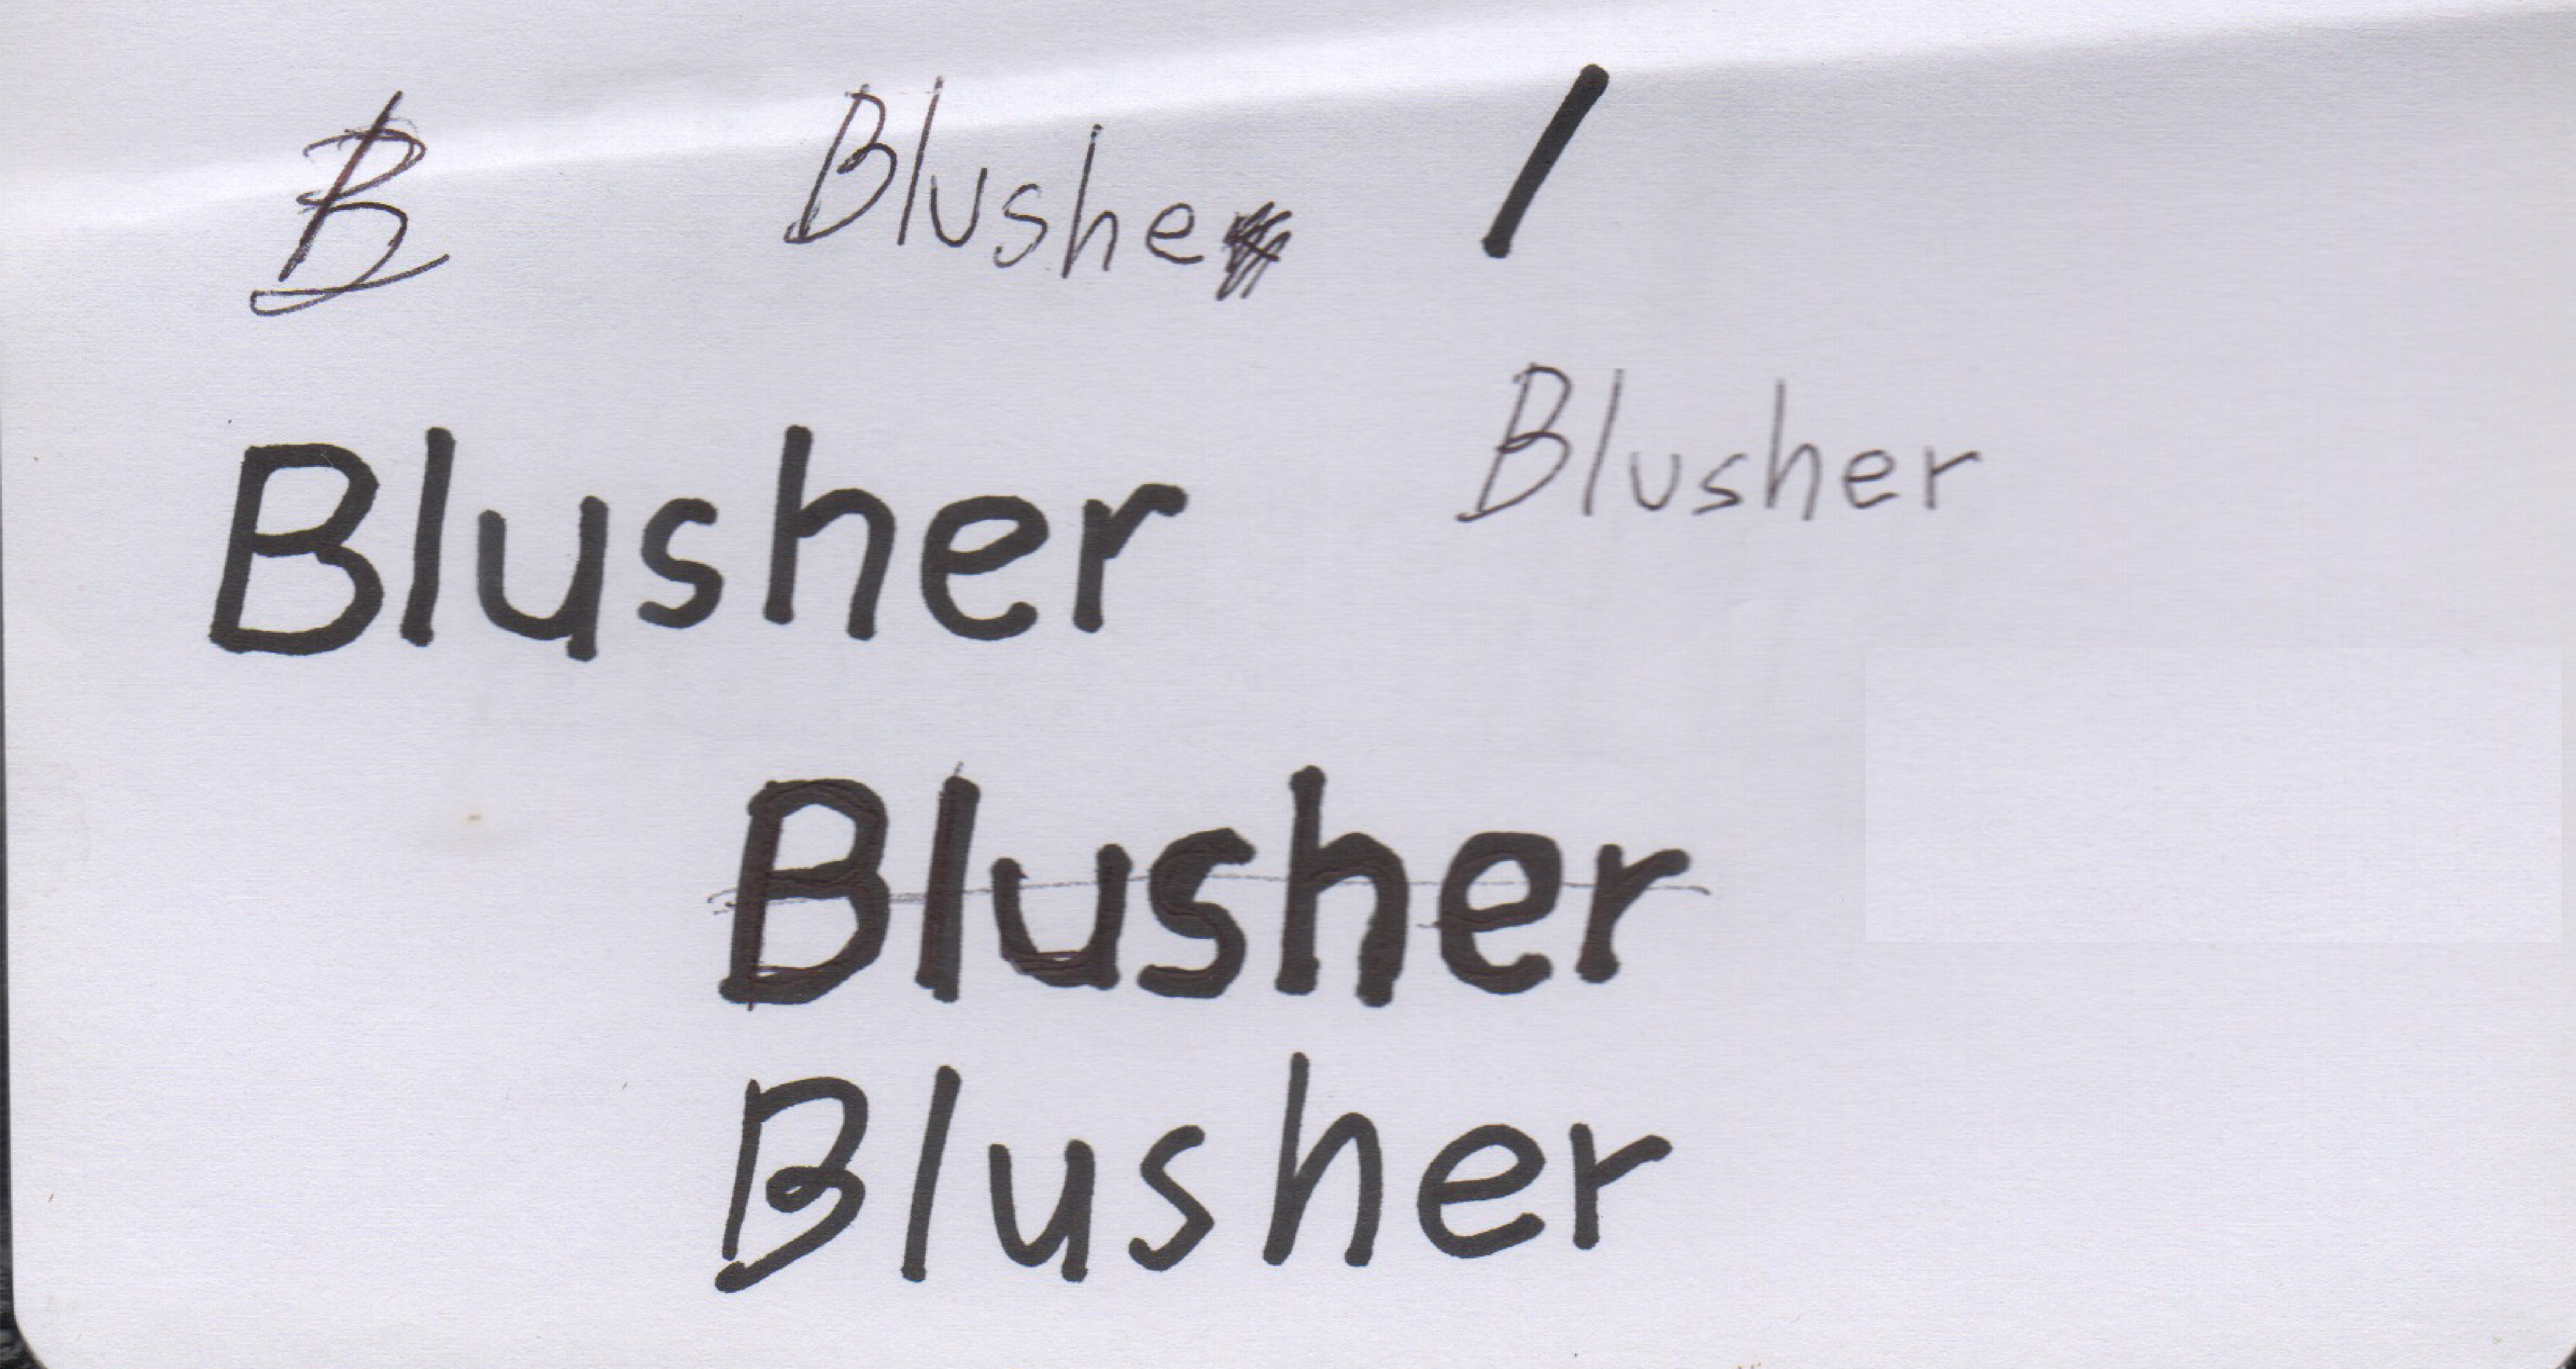 B Blushe
Blusher
Blusher
Blusher
Blusher